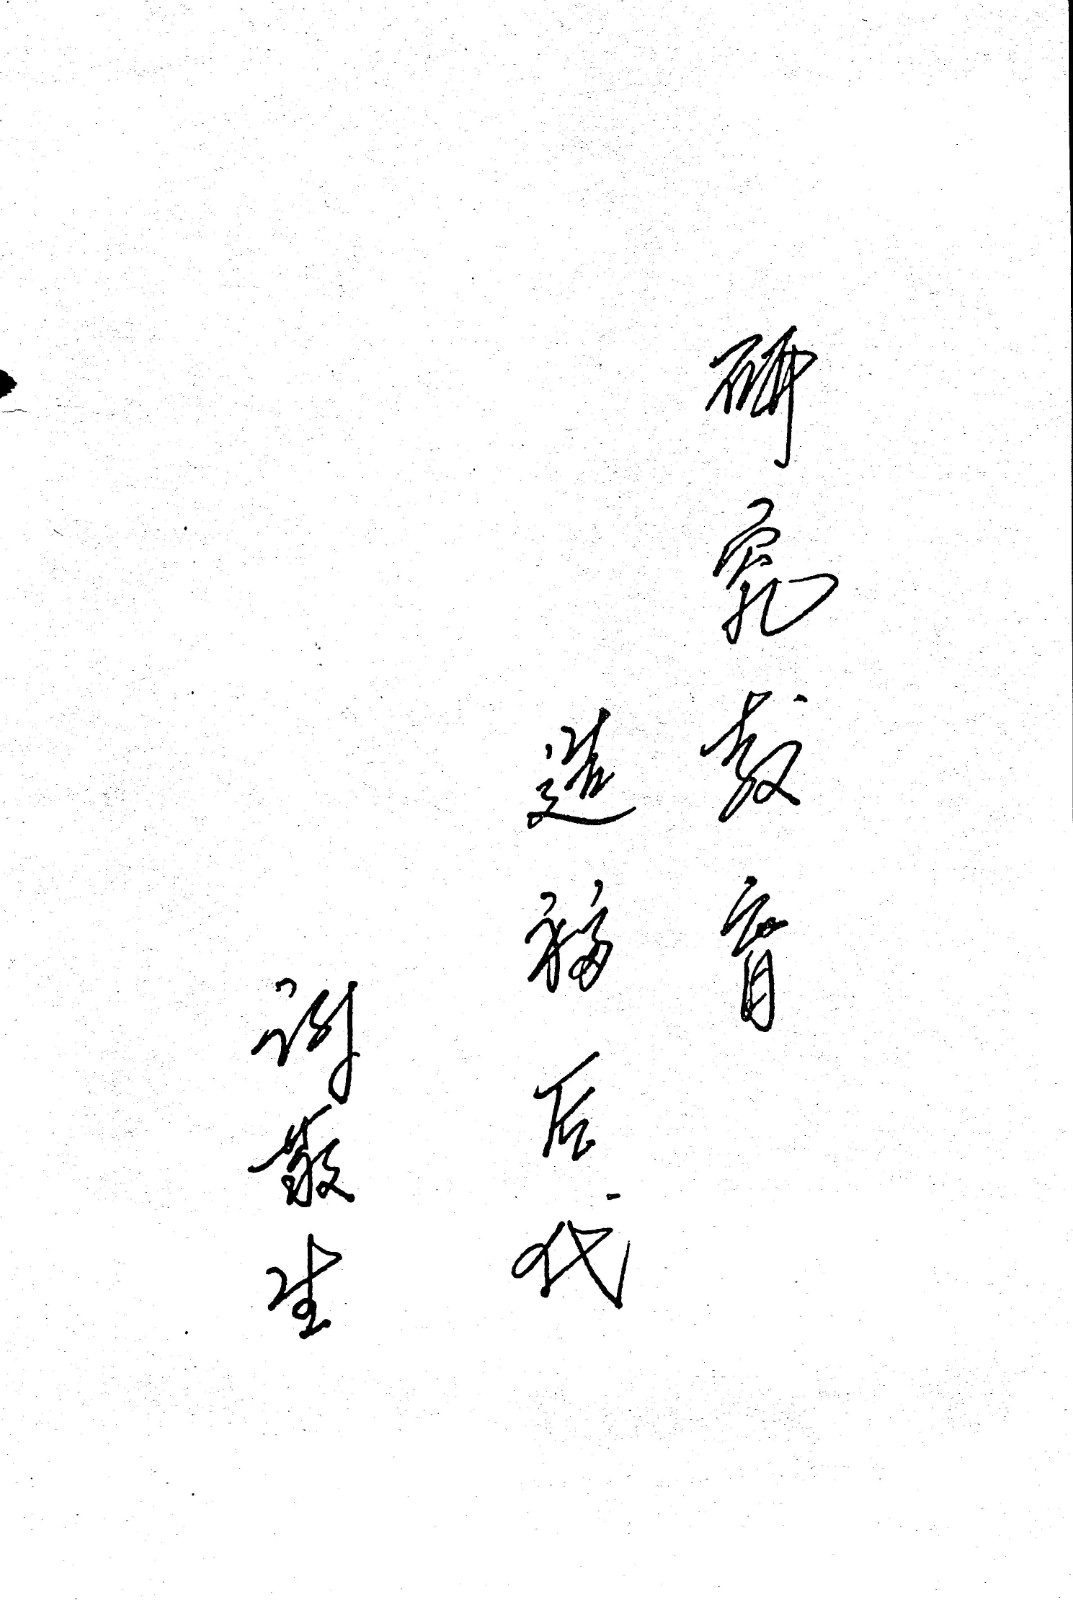 研究教育
造福后代
谢敬生